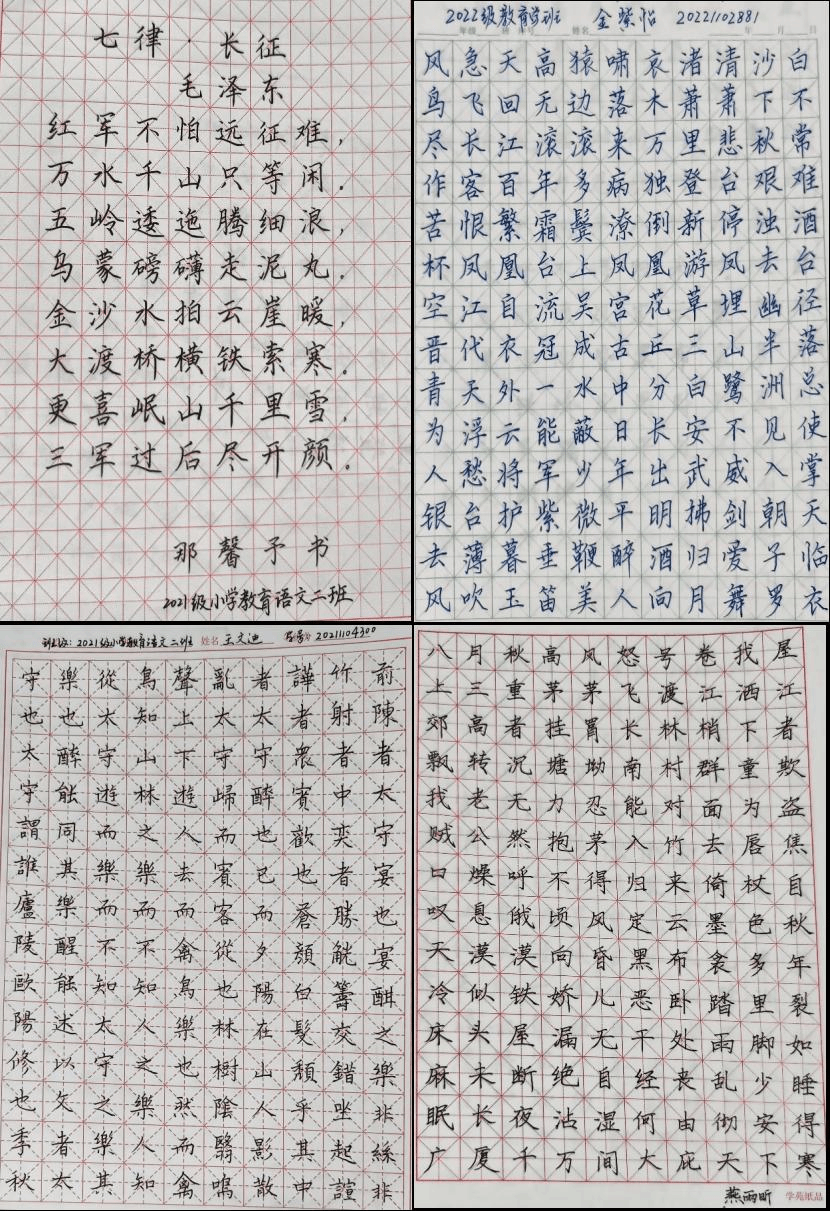 七律·长征
毛泽东
红军不怕远征难，
万水千山只等闲。
五岭逶迤腾细浪，
乌蒙磅礴走泥丸。
金沙水拍云崖暖，
大渡桥横铁索寒。
更喜岷山千里雪，
三军过后尽开颜。
那馨予书
2021级小学教育语文二班
2022级教育学班 金紫怡 20221102881
年级 班 姓名 年 月 日
风急天高猿啸哀渚清沙白
鸟飞回无边落木萧萧下不
尽长江滚滚来万里悲秋常
作客百年多病独登台艰难
苦恨繁霜鬓潦倒新停浊酒
杯凤凰台上凤凰游凤去台
空江自流吴宫花草埋幽径
晋代衣冠成古丘三山半落
青天外一水中分白鹭洲总
为浮云能蔽日长安不见使
人愁将军少年出武威入掌
银台护紫微平明拂剑朝天
去薄暮垂鞭醉酒归爱子临
风吹玉笛美人向月舞罗衣
班级：2021级小学教育语文二班 姓名 王文迪 学号：2021104300
前陳者太守宴也宴酣之樂非絲非
竹射者中奕者勝觥籌交錯坐起諠
譁者衆賓歡也蒼顏白髮頹乎其中
者太守醉也已而夕陽在山人影散
亂太守歸而賓客從也林樹陰翳鳴
聲上下遊人去而禽鳥樂也然而禽
鳥知山林之樂而不知人之樂人知
從太守遊而樂而不知太守之樂其
樂也醉能同其樂醒能述以文者太
守也太守謂誰廬陵歐陽修也季秋
八月秋高风怒号卷我屋
上三重茅茅飞渡江洒江
郊高者挂罥长林梢下者
飘转沉塘坳南村群童欺
我老无力忍能对面为盗
贼公然抱茅入竹去唇焦
口燥呼不得归来倚杖自
叹息俄顷风定云墨色秋
天漠漠向昏黑布衾多年
冷似铁娇儿恶卧踏里裂
床头屋漏无干处雨脚如
麻未断绝自经丧乱少睡
眠长夜沾湿何由彻安得
广厦千万间大庇天下寒
燕雨昕 学苑纸品